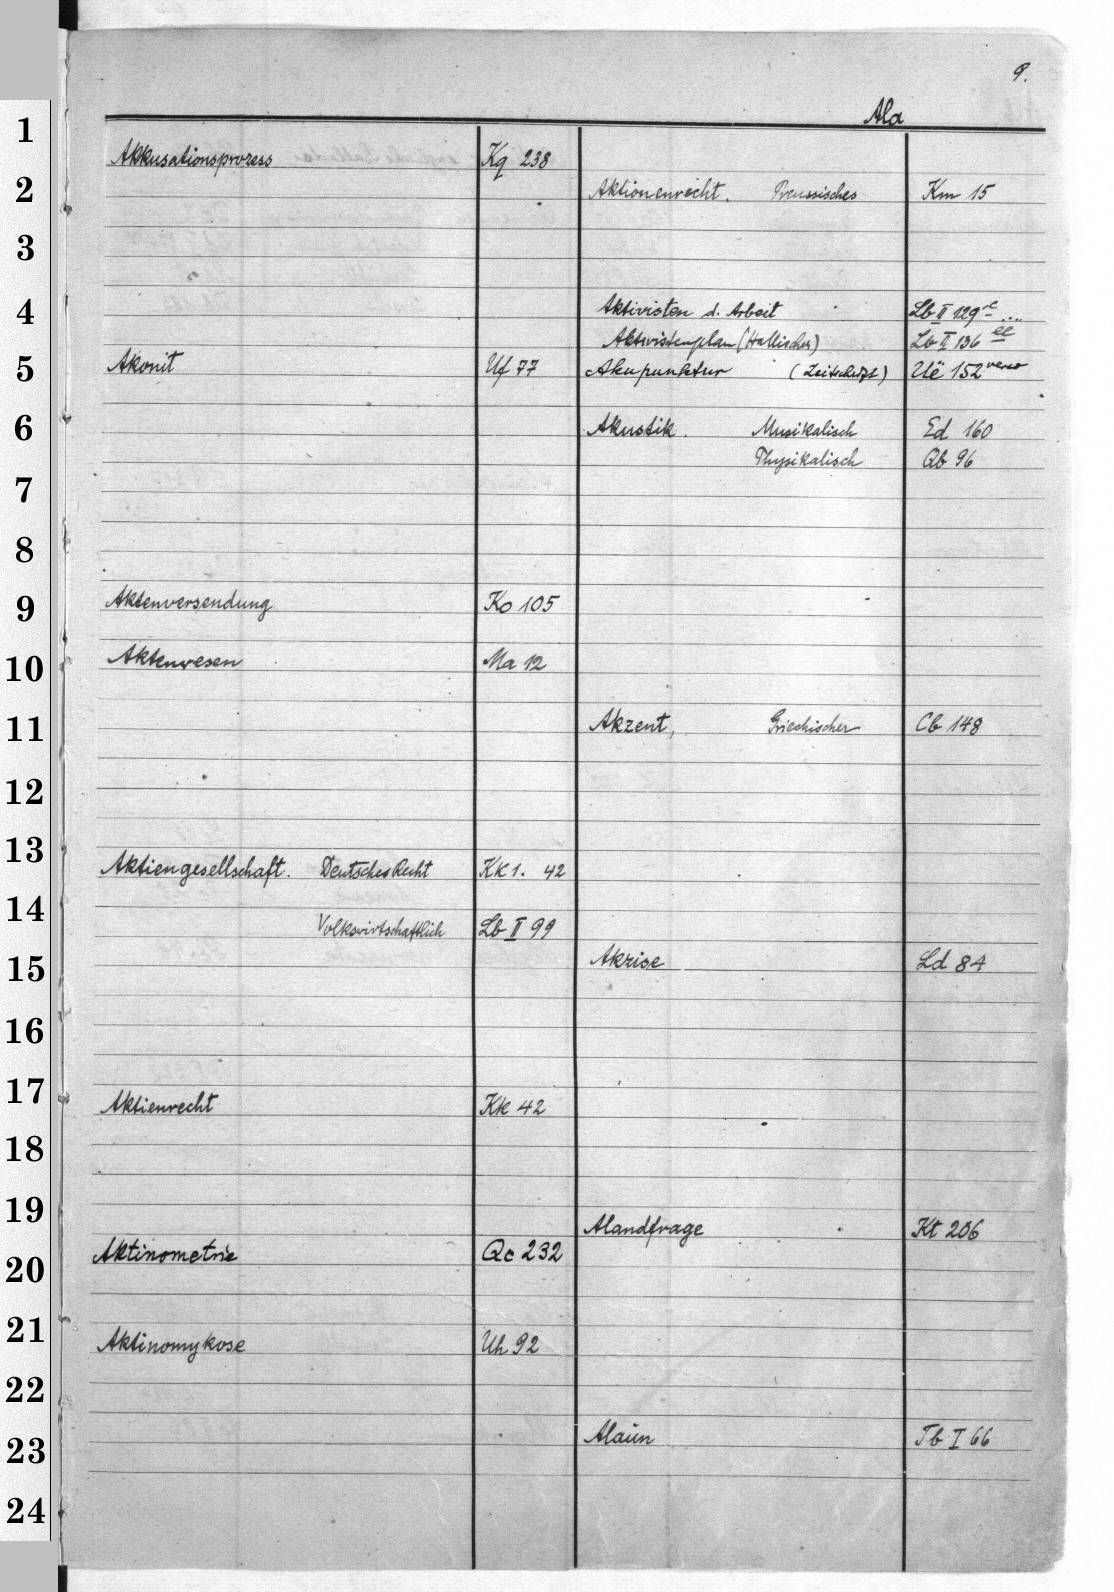 9.
Ala
Akkusationsprozess Kq 238
Akonit Uf 77
Aktenversendung Ko 105
Aktenwesen Ma 12
Aktiengesellschaft. Deutsches Recht Kk 1. 42
Volkswirtschaftlich Lb II 99
Aktienrecht Kk 42
Aktinometrie Qc 232
Aktinomykose Uh 92
Aktionenrecht. Preussisches Km 15
Aktivisten d. Arbeit Lb II 129
Aktivistenplan (Hallischer) Lb II 136
Akupunktur (Zeitschrft) Uë 152 verso
Akustik. Musikalisch Ed 160
Physikalisch Qb 96
Akzent, Griechischer Cb 148
Akzise Ld 84
Alandfrage Kt 206
Alaun Tb I 66
1
2
3
4
5
6
7
8
9
10
11
12
13
14
15
16
17
18
19
20
21
22
23
24